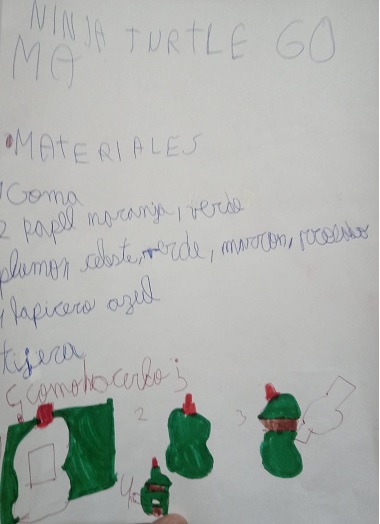 NINJA TURTLE GO
MA
MATERIALES
1 Goma
2 papel naranja, verde
plumon celeste, verde, marron,
1 lapicero azul
tijera
¿como hacerlo?
2
3
4